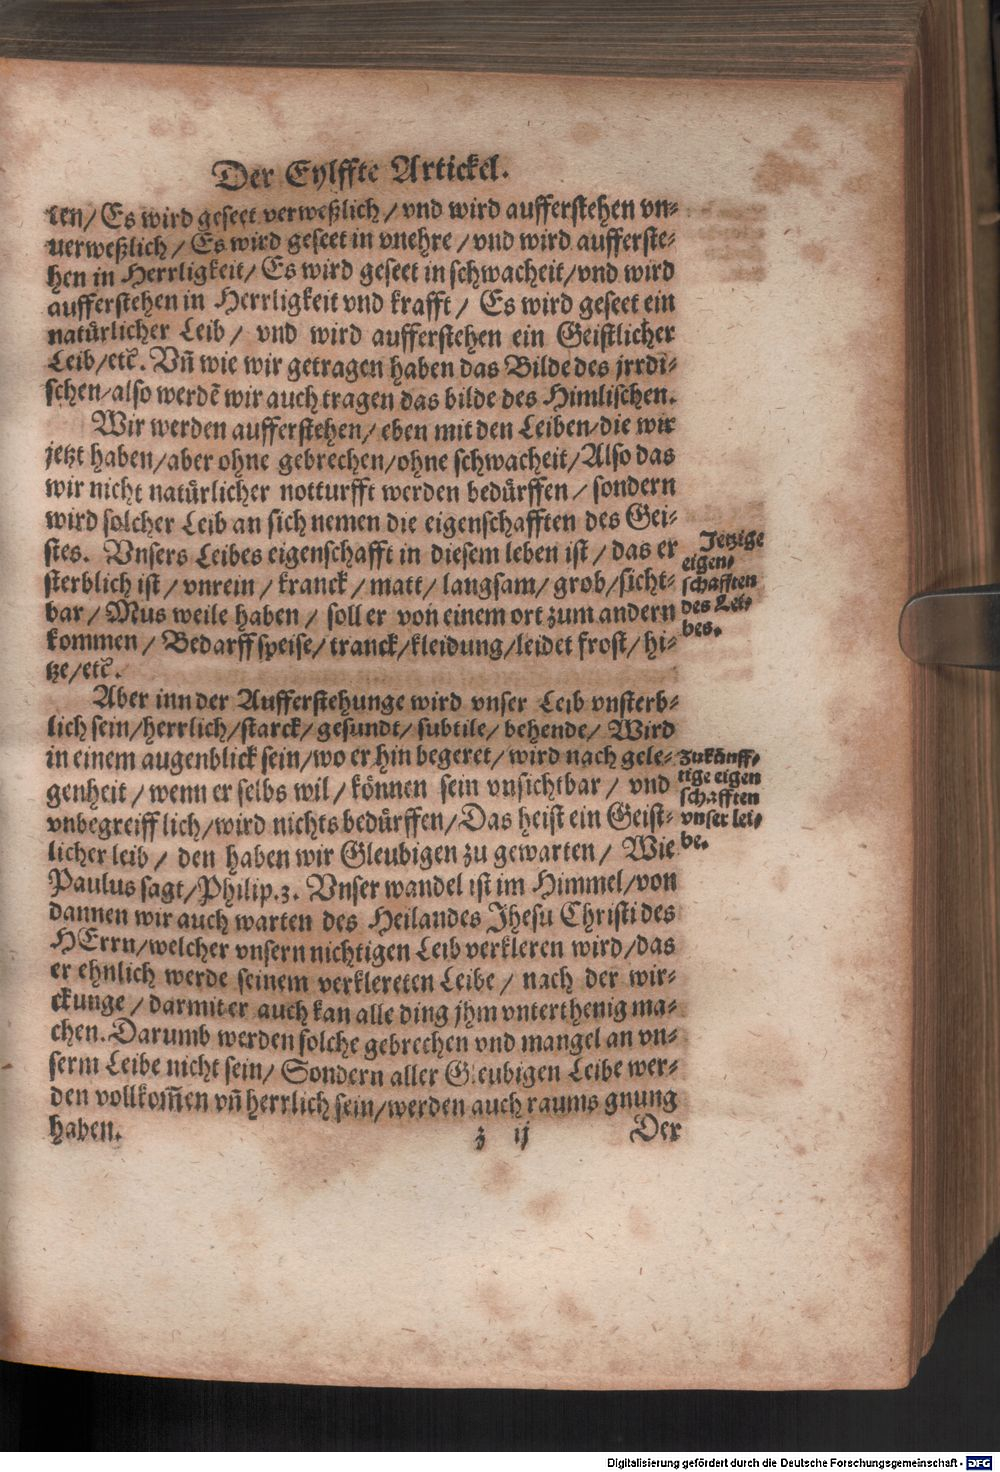 Der Eylffte Artickel.
len/ Es wird geseet verweßlich/ vnd wird aufferstehen vn-
uerweßlich/ Es wird geseet in vnehre/ vnd wird aufferste-
hen in Herrligkeit/ Es wird geseet in schwacheit/ vnd wird
aufferstehen in Herrligkeit vnd krafft/ Es wird geseet ein
natürlicher Leib/ vnd wird aufferstehen ein Geistlicher
Leib/etc̃. Vñ wie wir getragen haben das Bilde des jrrdi-
schen/also werdẽ wir auch tragen das bilde des Himlischen.
Wir werden aufferstehen/ eben mit den Leiben/die wir
jetzt haben/aber ohne gebrechen/ohne schwacheit/Also das
wir nicht natürlicher notturfft werden bedürffen/ sondern
wird solcher Leib an sich nemen die eigenschafften des Gei-
stes. Vnsers Leibes eigenschafft in diesem leben ist/ das er
sterblich ist/ vnrein/ kranck/ matt/ langsam/ grob/sicht-
bar/ Mus weile haben/ soll er von einem ort zum andern
kommen/ Bedarff speise/ tranck/kleidung/leidet frost/ hi-
tze/etc̃.
Jetzige
eigen-
schafften
des Lei-
bes.
Aber inn der Aufferstehunge wird vnser Leib vnsterb-
lich sein/herrlich/starck/ gesundt/ subtile/ behende/ Wird
in einem augenblick sein/wo er hin begeret/ wird nach gele-
genheit/ wenn er selbs wil/ können sein vnsichtbar/ vnd
vnbegreifflich/wird nichts bedürffen/Das heist ein Geist-
licher leib/ den haben wir Gleubigen zu gewarten/ Wie
Paulus sagt/Philip.3. Vnser wandel ist im Himmel/von
dannen wir auch warten des Heilandes Jhesu Christi des
HErrn/welcher vnsern nichtigen Leib verkleren wird/das
er ehnlich werde seinem verklereten Leibe/ nach der wir-
ckunge/ darmit er auch kan alle ding jhm vnterthenig ma-
chen. Darumb werden solche gebrechen vnd mangel an vn-
serm Leibe nicht sein/ Sondern aller Gleubigen Leibe wer-
den vollkom̃en vñ herrlich sein/werden auch raums gnung
haben.
Zukünff-
tige eigen
schafften
vnser lei-
be.
z ij Der
Digitalisierung gefördert durch die Deutsche Forschungsgemeinschaft - DFG